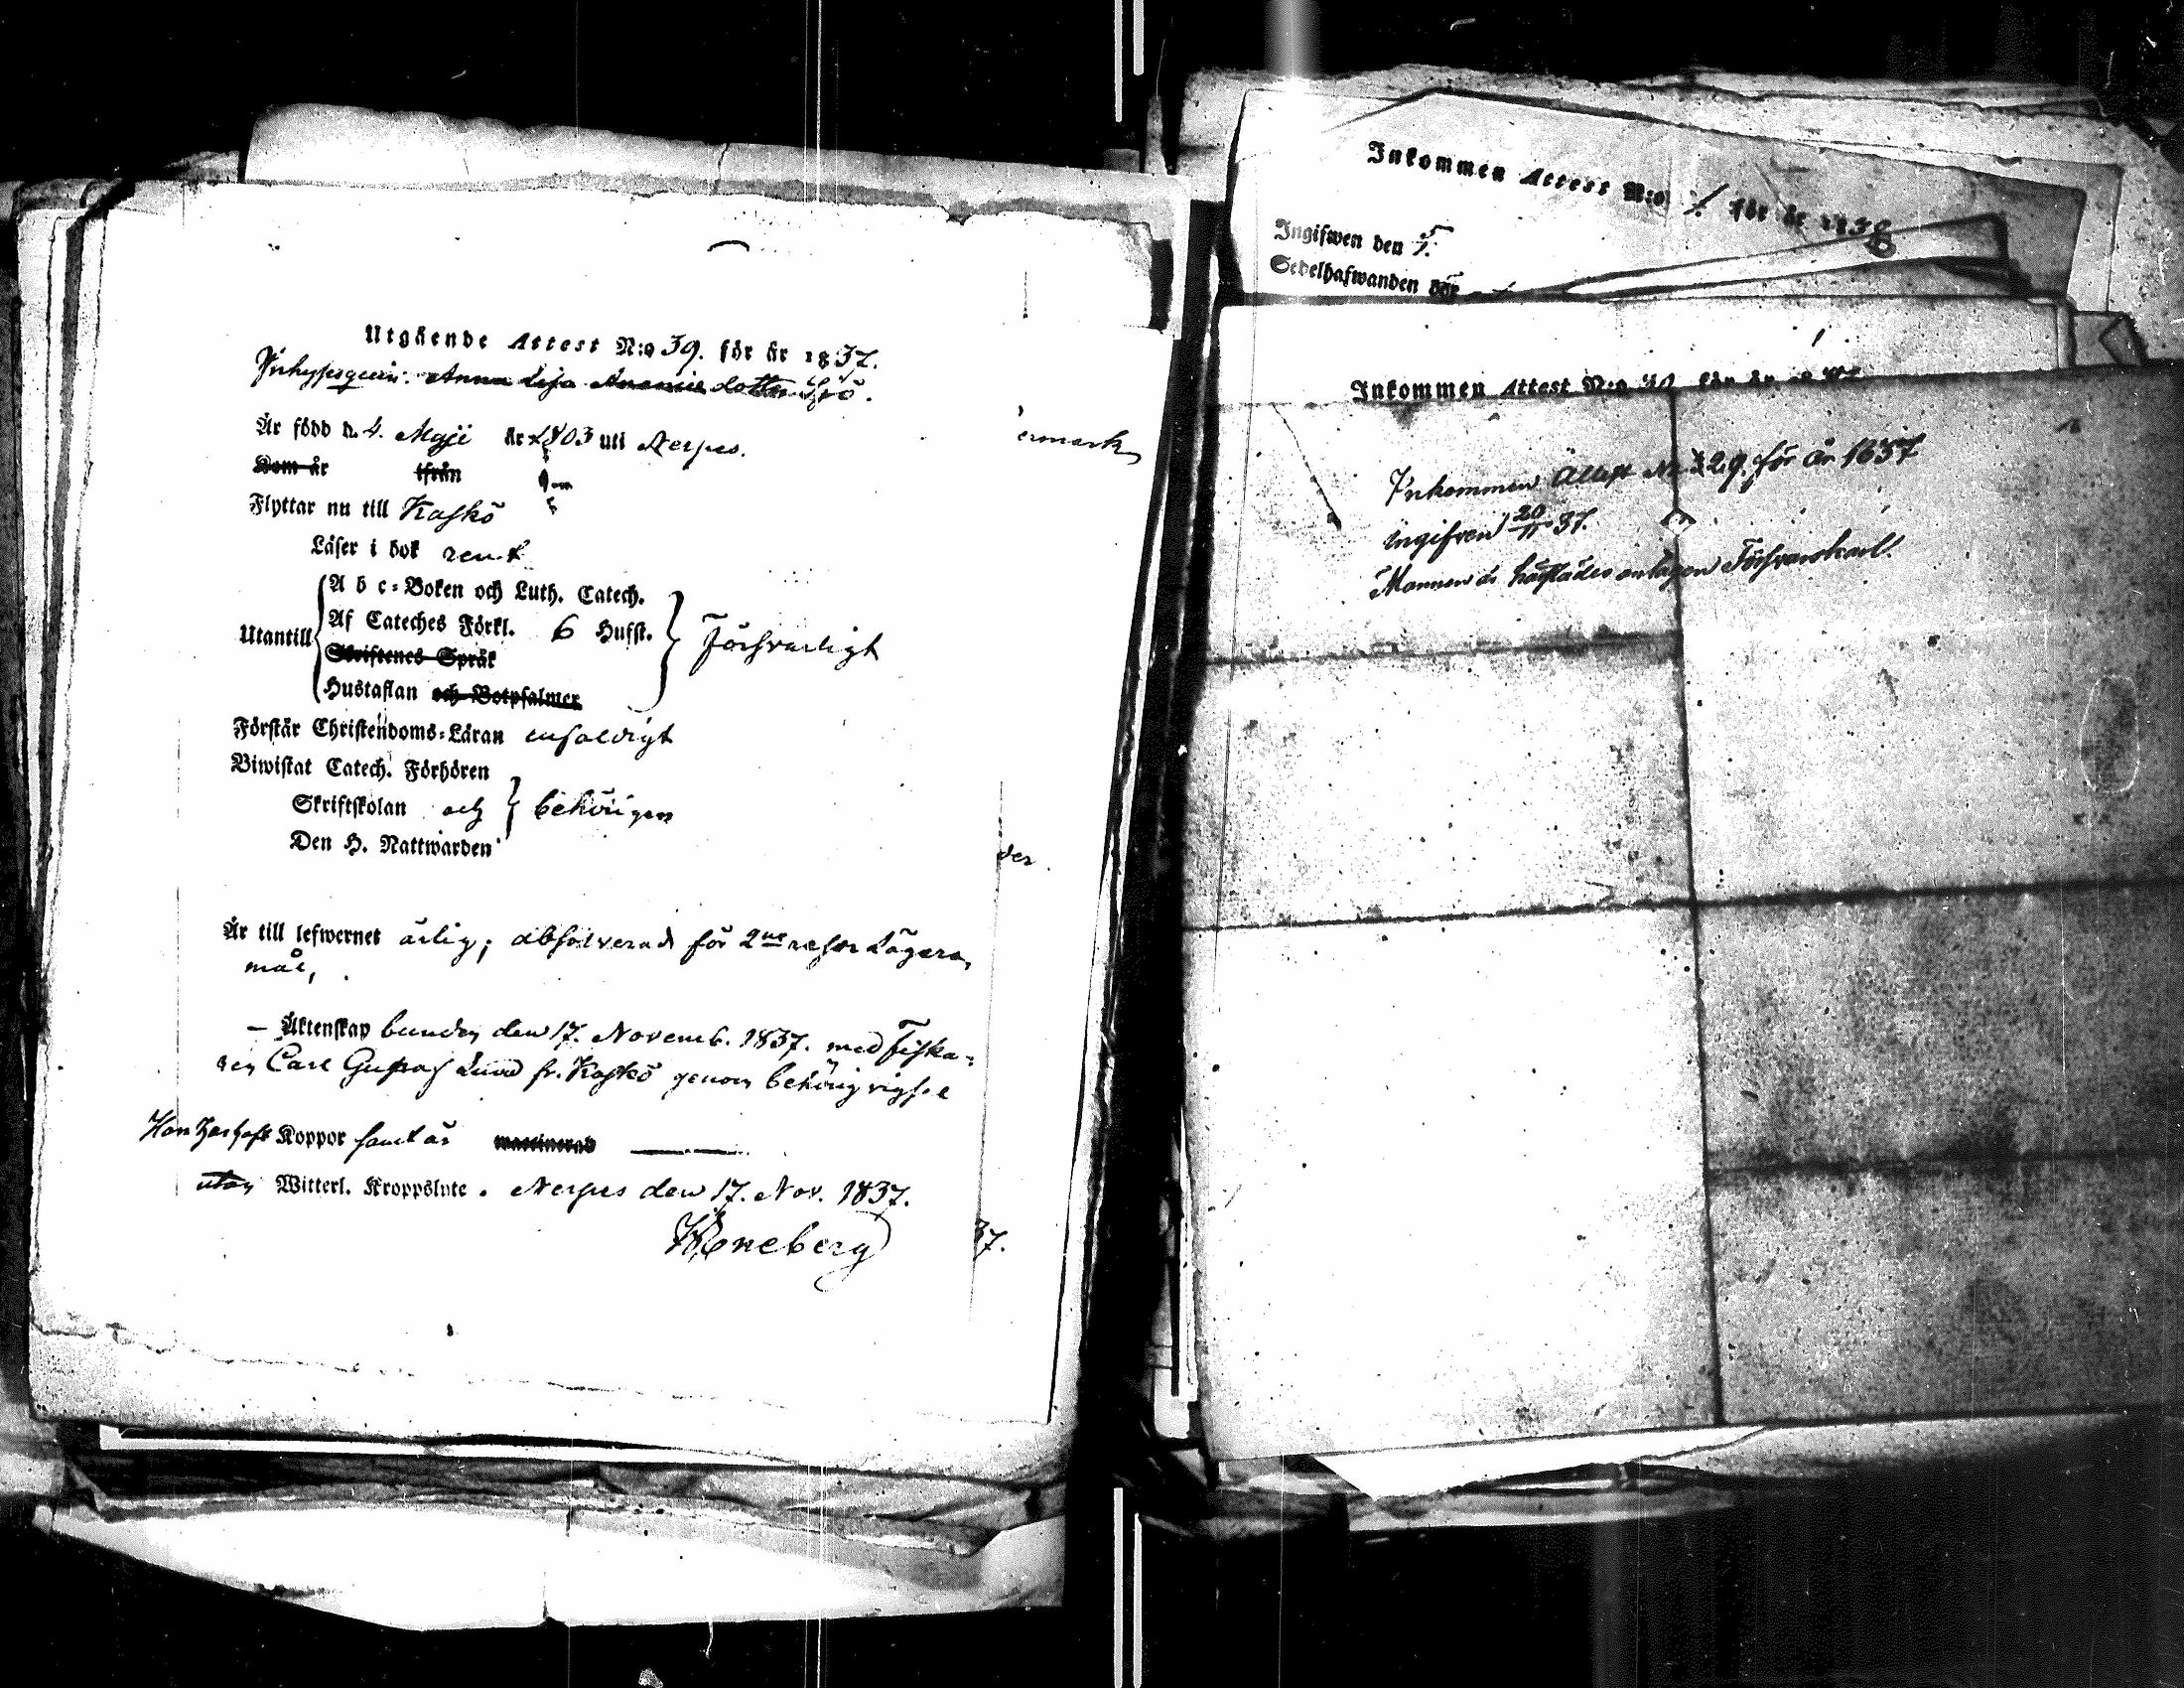 Utgående Attest N:o 39. för år 1837.
Inhysesqvin. Anna Lisa dotter Sjö.
Är född d. 4. Maji år 1803 uti Nerpes.
Kom år ifrån
Flyttar nu till Kaskö
Läser i bok rent
A b c-Boken och Luth. Catech.
Utantill Af Cateches Förkl. 6 Hufst. Försvarligt
Skriftenes Språk
Hustaflan och Botpsalmer
Förstår Christendoms-Läran enfaldigt
Biwistat Catech. Förhören
Skriftskolan och behörigen
Den H. Nattwarden
Är till lefwernet ärlig; absolverad för 2ne resor Lägers
mål,
– Äktenskap bunden den 17. Novemb. 1837. med Fiska-
ren Carl Gustaf Lund fr. Kaskö genom behörig vigsel
Hon har haft Koppor samt är waccinerad
utan Witterl. Kroppslyte. Nerpes den 17. Nov. 1837.
Roneberg
ermark
der.
37.
Inkommen Attest N:o 1. för år 1838
Ingifwen den
Sedelhafwanden bör
Inkommen Attest N:o 30 för år
Inkommen Attest No 29. för år 1837
ingifven 20/11 37.
Mannen är härstädes antagen Försvarskarl.